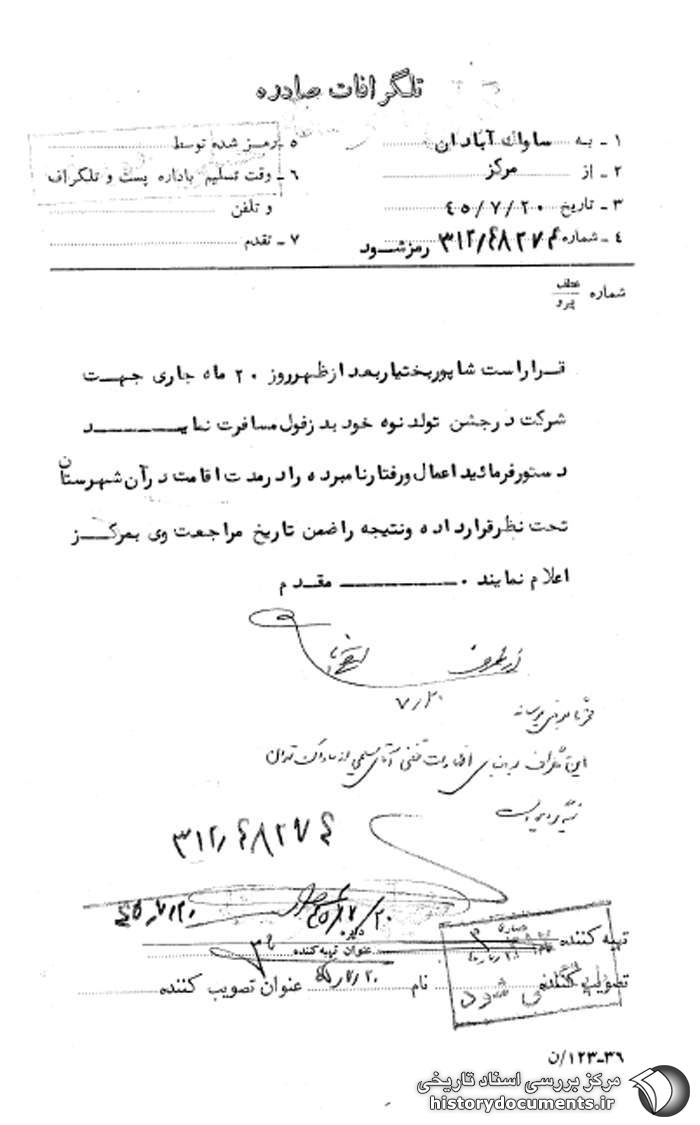 تلگرافات صادره
۱ ـ به ساواک آبادان
۲ ـ از مرکز
۳ ـ تاریخ ۴۵/۷/۲۰
۴ ـ شماره ۳۱۲/۴۸۲۷۴ رمز شود
۵ ـ رمز شده توسط
۶ ـ وقت تسلیم باداره پست و تلگراف
و تلفن
۷ ـ تقدم
شماره عطف
پیرو
قرار است شاپور بختیار بعد از ظهر روز ۲۰ ماه جاری جهت
شرکت در جشن تولد نوه خود بدزفول مسافرت نماید
دستور فرمائید اعمال و رفتار نامبرده را در مدت اقامت در آن شهرستان
تحت نظر قرار داده و نتیجه را ضمن تاریخ مراجعت وی بمرکز
اعلام نمایند ۰ مقدم
از طرف
۷/۲۰
این تلگراف
۳۱۲/۴۸۲۷۴
۴۵/۷/۲۰
۴۵/۷/۲۰
تهیه کننده
عنوان تهیه کننده
تصویب کننده
نام
۴۵/۷/۲۰
عنوان تصویب کننده
می شود
۳۶-۱۲۳/ن
مرکز بررسی اسناد تاریخی
historydocuments.ir